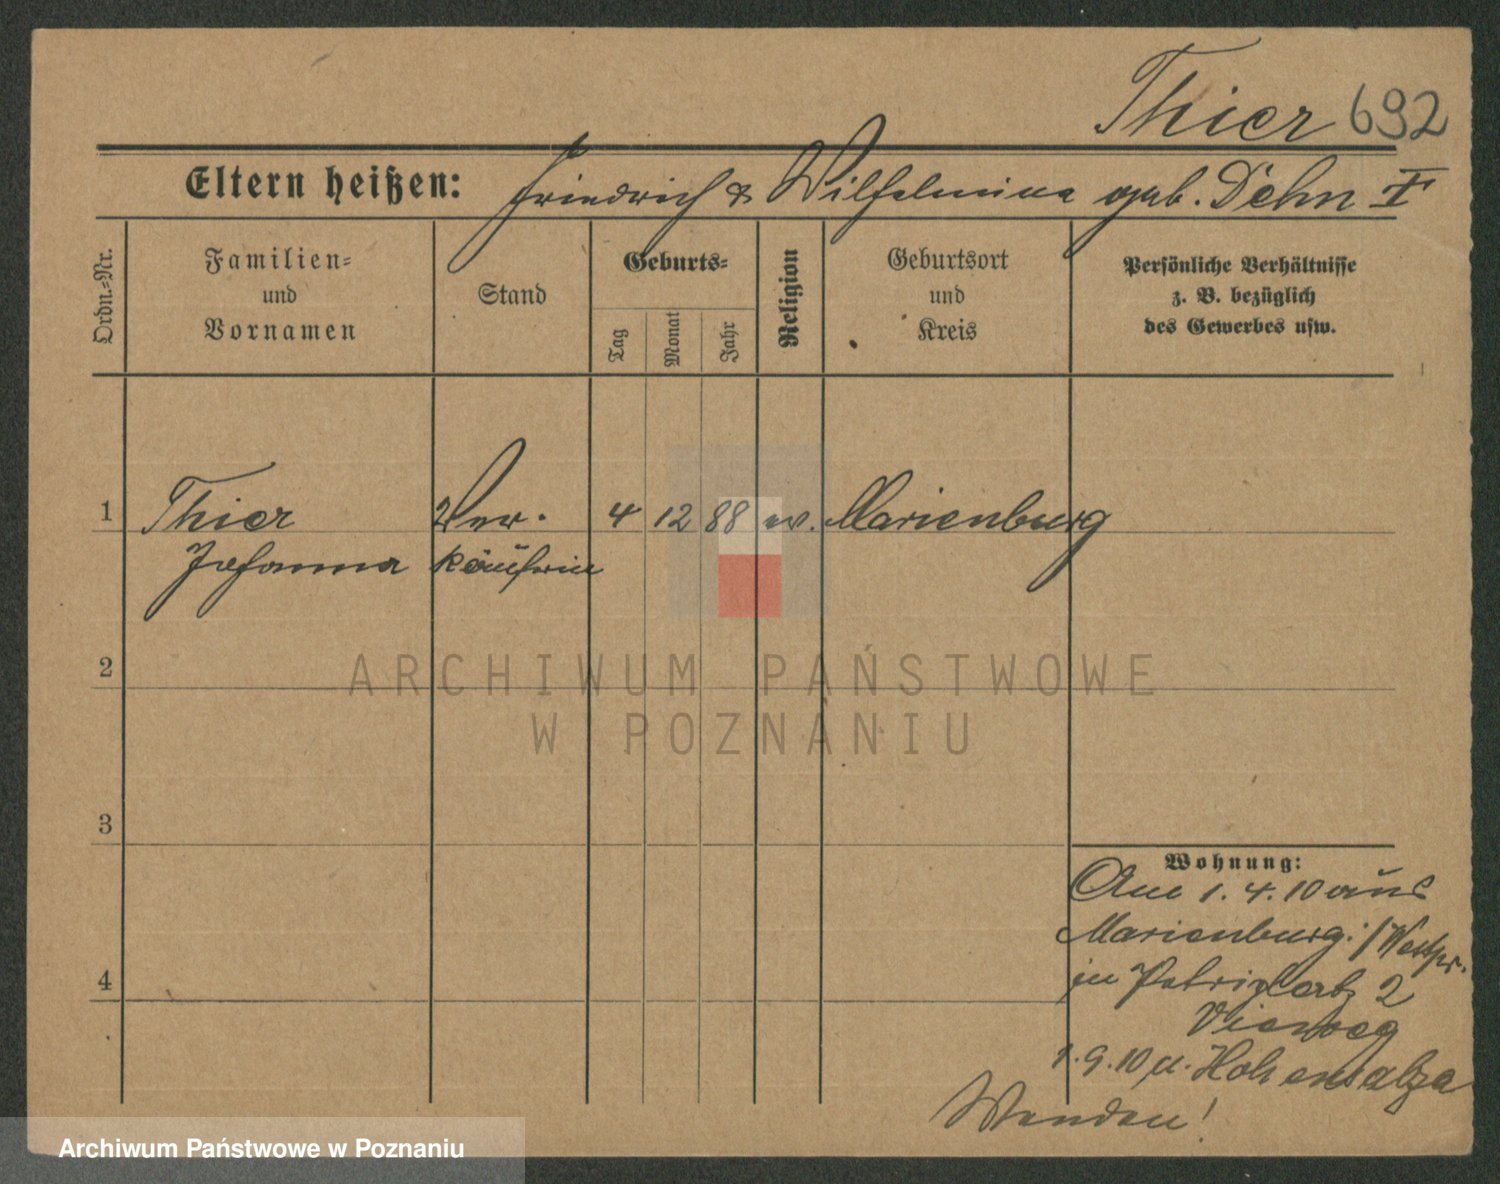 Thier 692
Eltern heißen: Friedrich & Wilhelmina geb. Dehn
Ordn.-Nr.
Familien- und Vornamen
Stand
Geburts-
Tag
Monat
Jahr
Religion
Geburtsort und Kreis
Persönliche Verhältnisse
z. B. bezüglich
des Gewerbes usw.
1 Thier Ver- 4 12 88 ev. Marienburg
Johanna käuferin
2
3
4
Wohnung:
Am 1.4.10 aus
Marienburg i/Westpr.
in Petriplatz 2
Vieweg
1.9.10 n. Hohensalza
Wenden!
ARCHIWUM PAŃSTWOWE
W POZNANIU
Archiwum Państwowe w Poznaniu